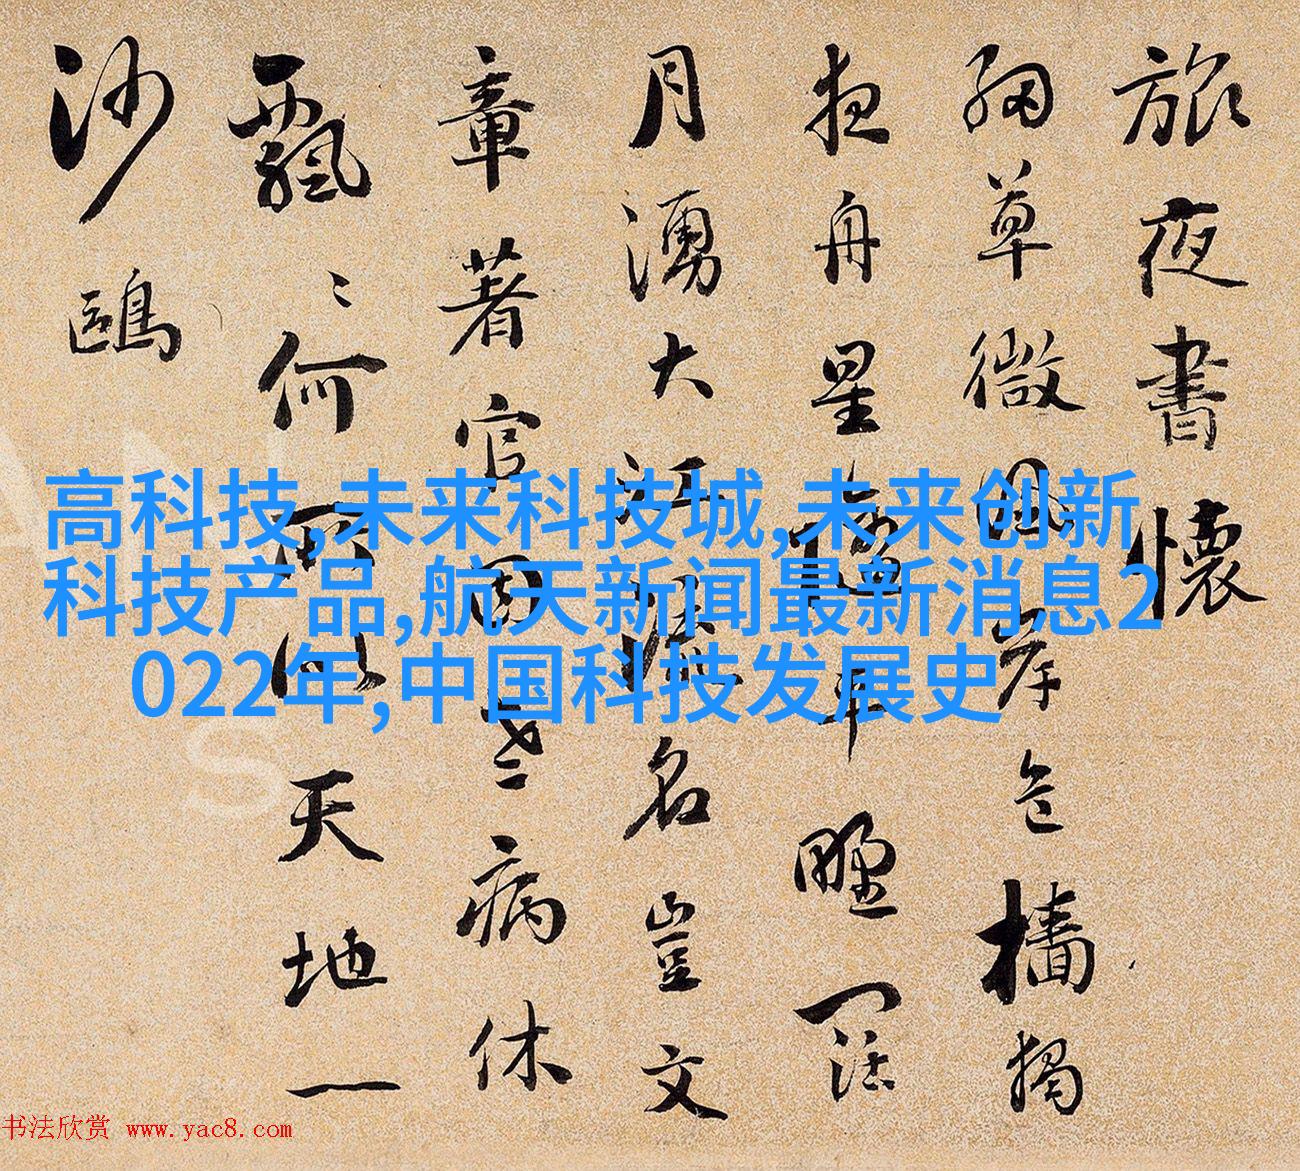 旅夜書懷
細草微風岸危檣獨
夜舟星平野闊
月湧大江流名豈文
章著官因老病休
飄〻何所似天地一
沙鷗
高科技,未来科技城,未来创新
科技产品,航天新闻最新消息2
022年,中国科技发展史
书法欣赏 www.yac8.com